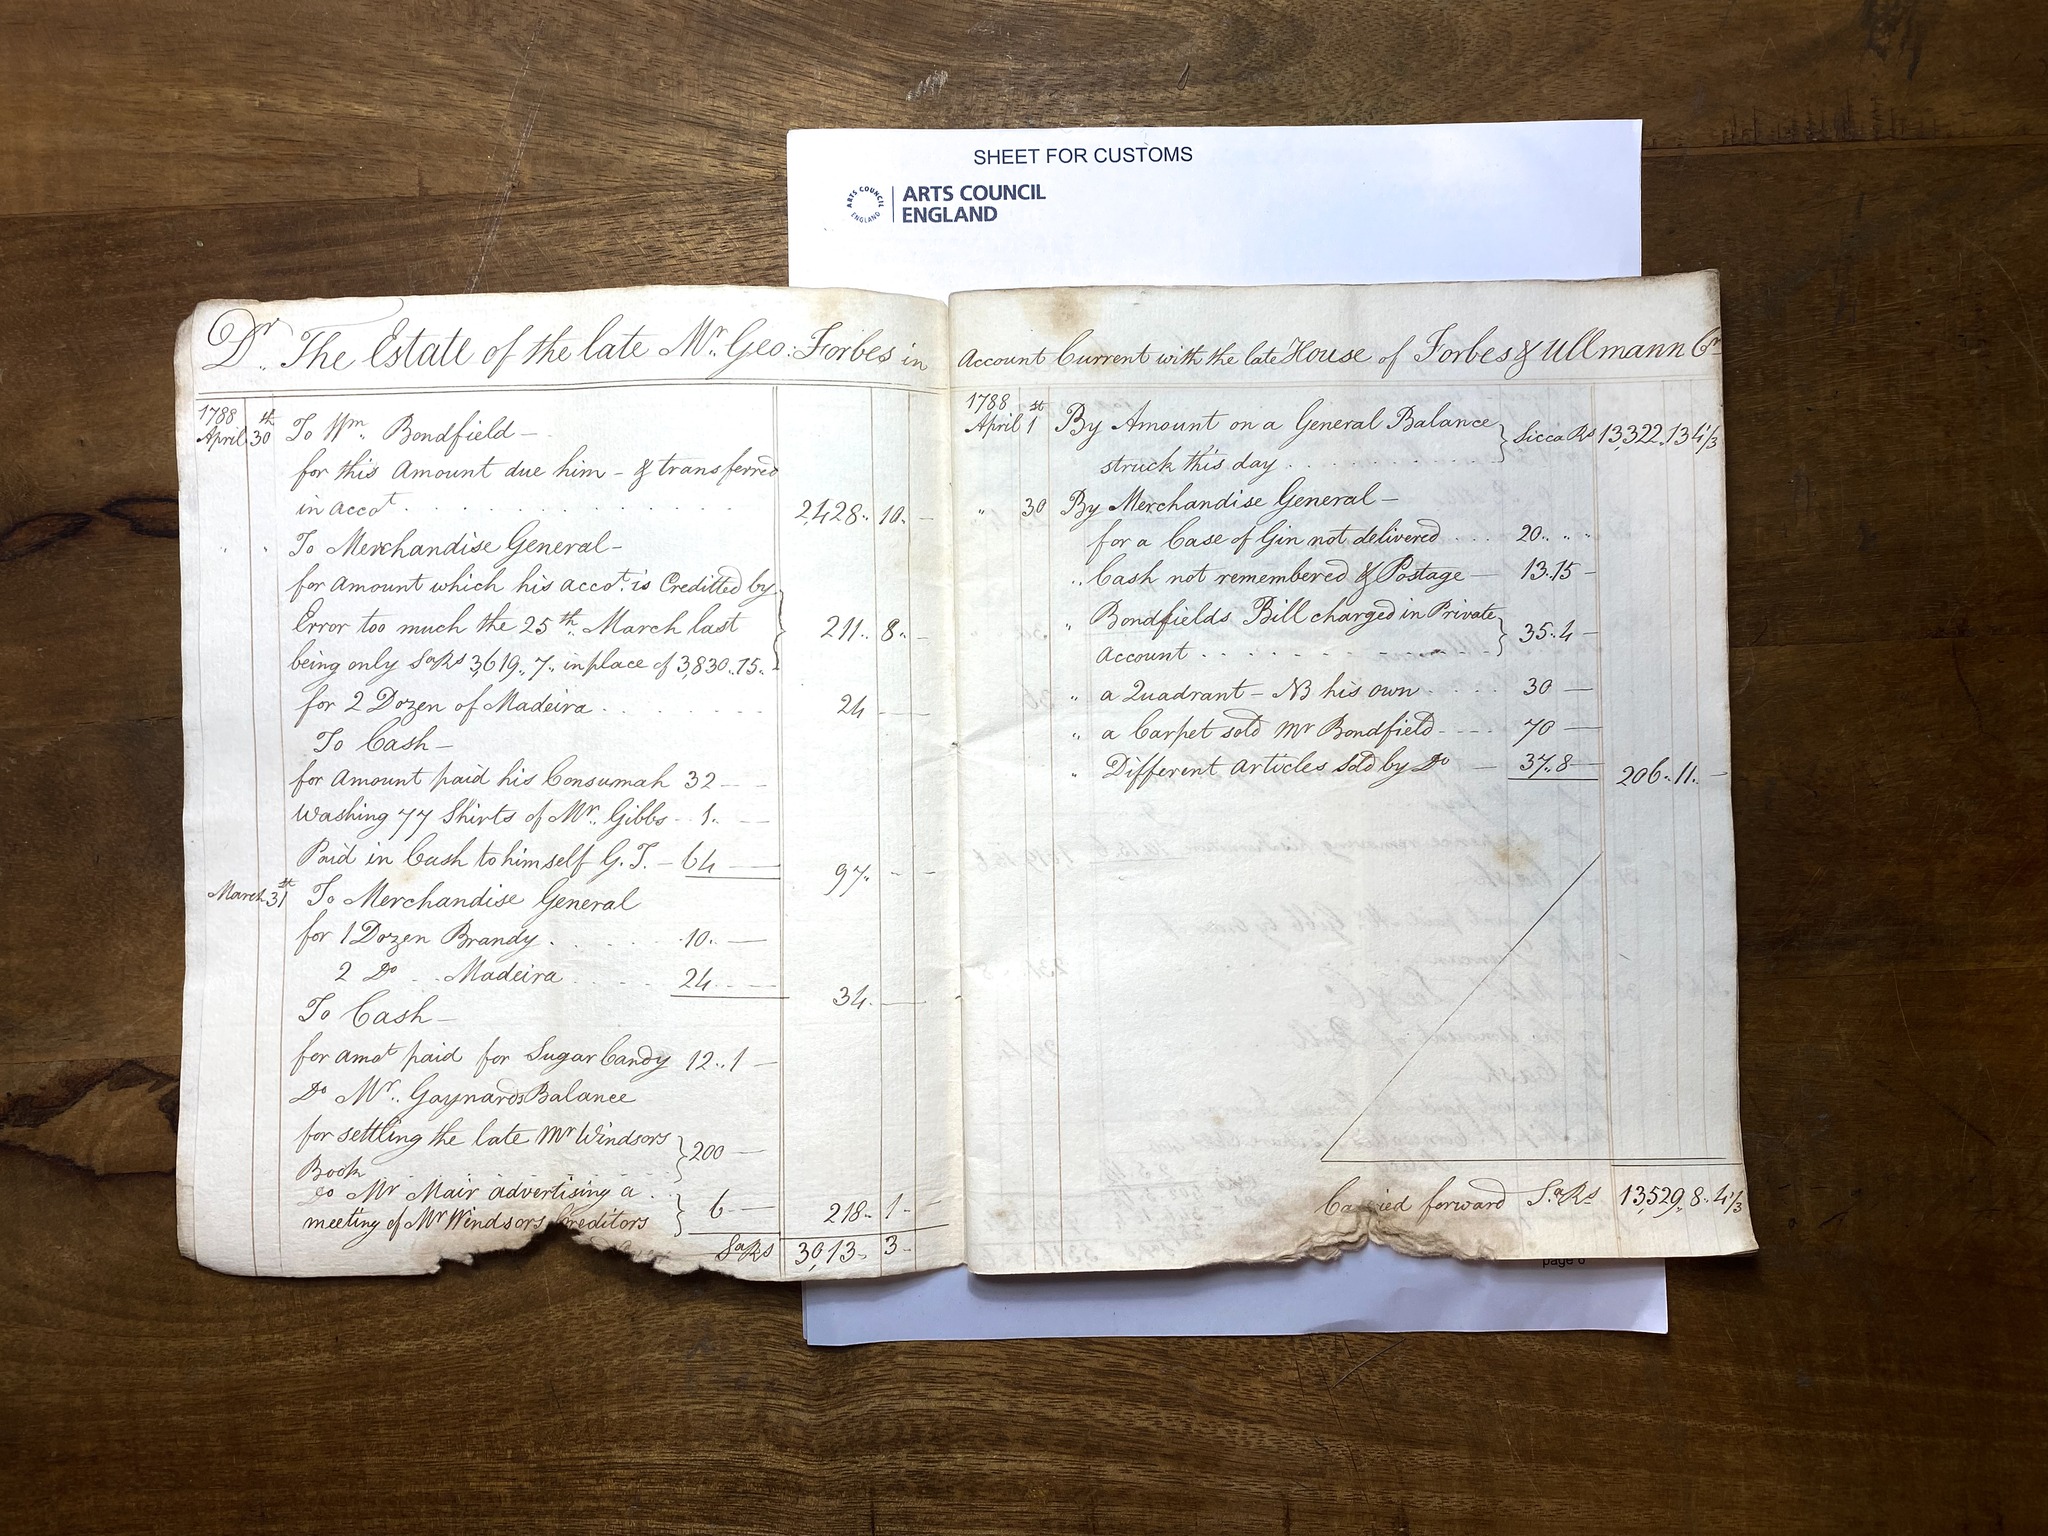 SHEET FOR CUSTOMS
ARTS COUNCIL ENGLAND
ARTS COUNCIL
ENGLAND
Dr. The Estate of the late Mr. Geo: Forbes in
1788
April 30th To Wm. Bondfield -
for this Amount due him - & transferred
in accot. 2,428.. 10.. -
" " To Merchandise General -
for amount which his accot. is Creditted by
Error too much the 25th. March last 211.. 8.. -
being only SaRs 3,619.. 7.. in place of 3,830..15..
for 2 Dozen of Madeira 24 -
To Cash -
for amount paid his Consumah 32 - -
Washing 77 Shirts of Mr. Gibbs - 1. -
Paid in Cash to himself G. F. - 64 - 97.. - -
March 31st To Merchandise General
for 1 Dozen Brandy 10.. -
2 Do .. Madeira 24.. - 34.. -
To Cash -
for amot paid for Sugar Candy 12..1 -
Do Mr. Gaynards Balance
for settling the late Mr Windsors 200 -
Book
Do Mr Mair advertising a
meeting of Mr Windsors Creditors 6 - 218.. 1 -
SaRs 3013.. 3 -
Account Current with the late House of Forbes & Ullmann Cr
1788
April 1st By Amount on a General Balance
struck this day Sicca Rs 13,322..13 4 1/3
" 30 By Merchandise General -
for a Case of Gin not delivered 20.. " "
" Cash not remembered & Postage - 13..15 -
" Bondfields Bill charged in Private
Account 35..4 -
" a Quadrant - NB his own 30 -
" a Carpet sold Mr Bondfield 70 -
" Different articles sold by Do - 37..8 - 206.. 11.. -
Carried forward SaRs 13,529.. 8.. 4 1/3
page 6